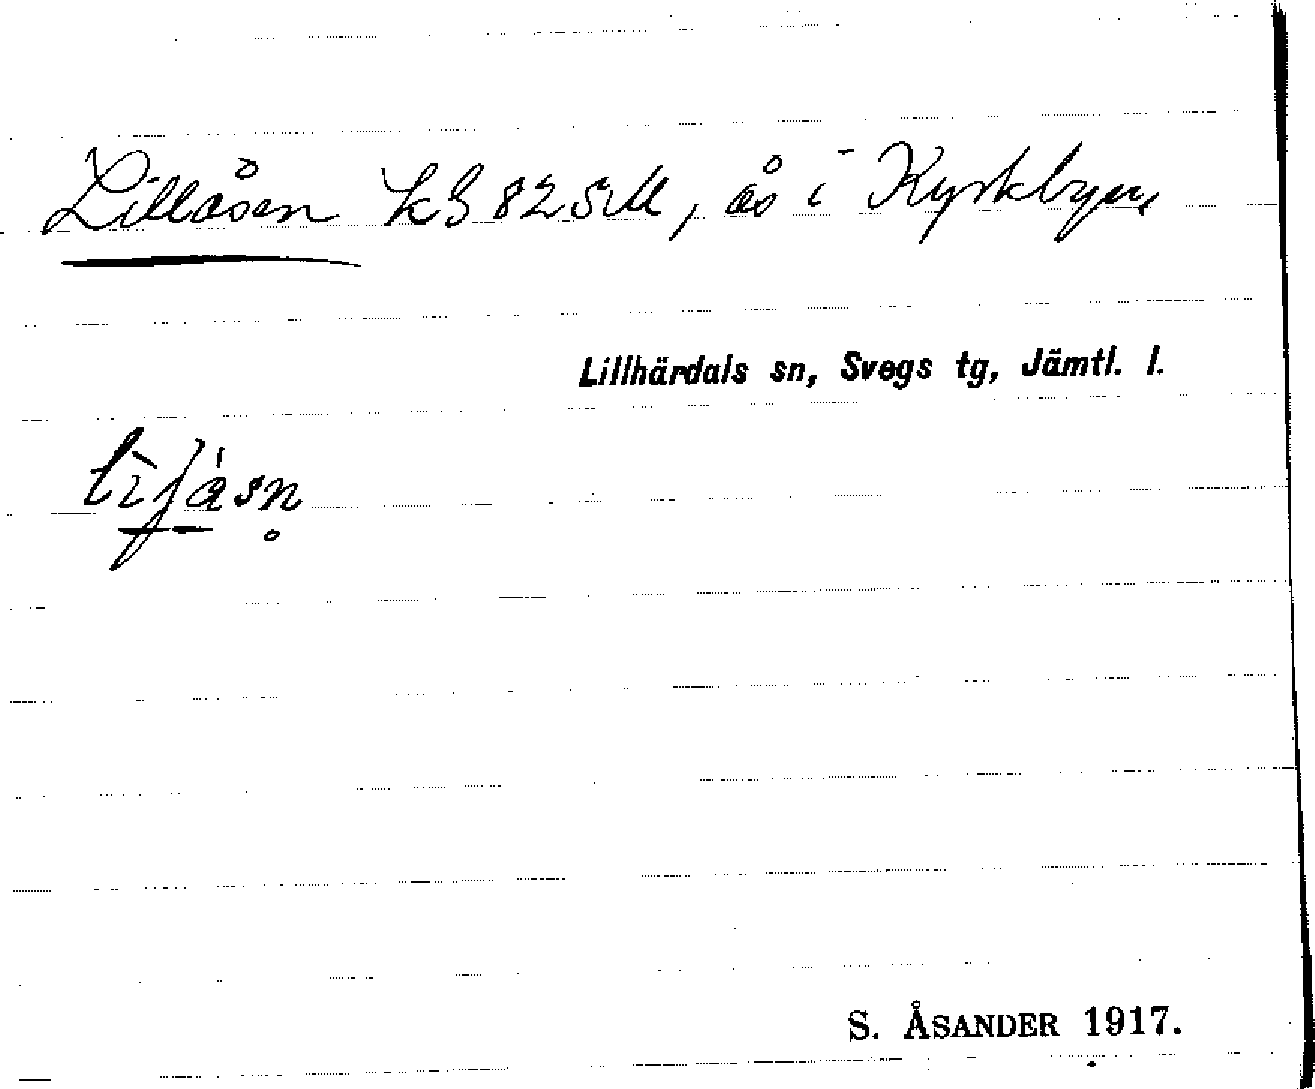 Lillåsen kg 825M, ås i Kyrkbyn,
Lillhärdals sn, Svegs tg, Jämtl. l.
S. ÅSANDER 1917.